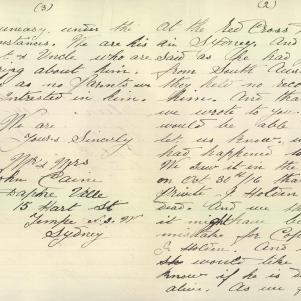 (3)
uneasy. under the
stances. We are his
t. & Uncle who are
ing about him.
s as no Parents are
Interested in him.
We are
Yours Sincerly
Mr & Mrs
John Caine
Daphne Ville
15 Hart St
Tempe N.S.W
Sydney
(2)
at the Red Cross
in Sydney. And
said as she had
from South Aus
they held no reco
them. And tha
we wrote to you
would be able
let us know. w
had happened to
We saw it in the
on Oct 30th/16 tha
Private J Holden
Dead. And we th
it might have be
mistake for Cap
J Holden. And
would like
know if he is d
alive. As we f